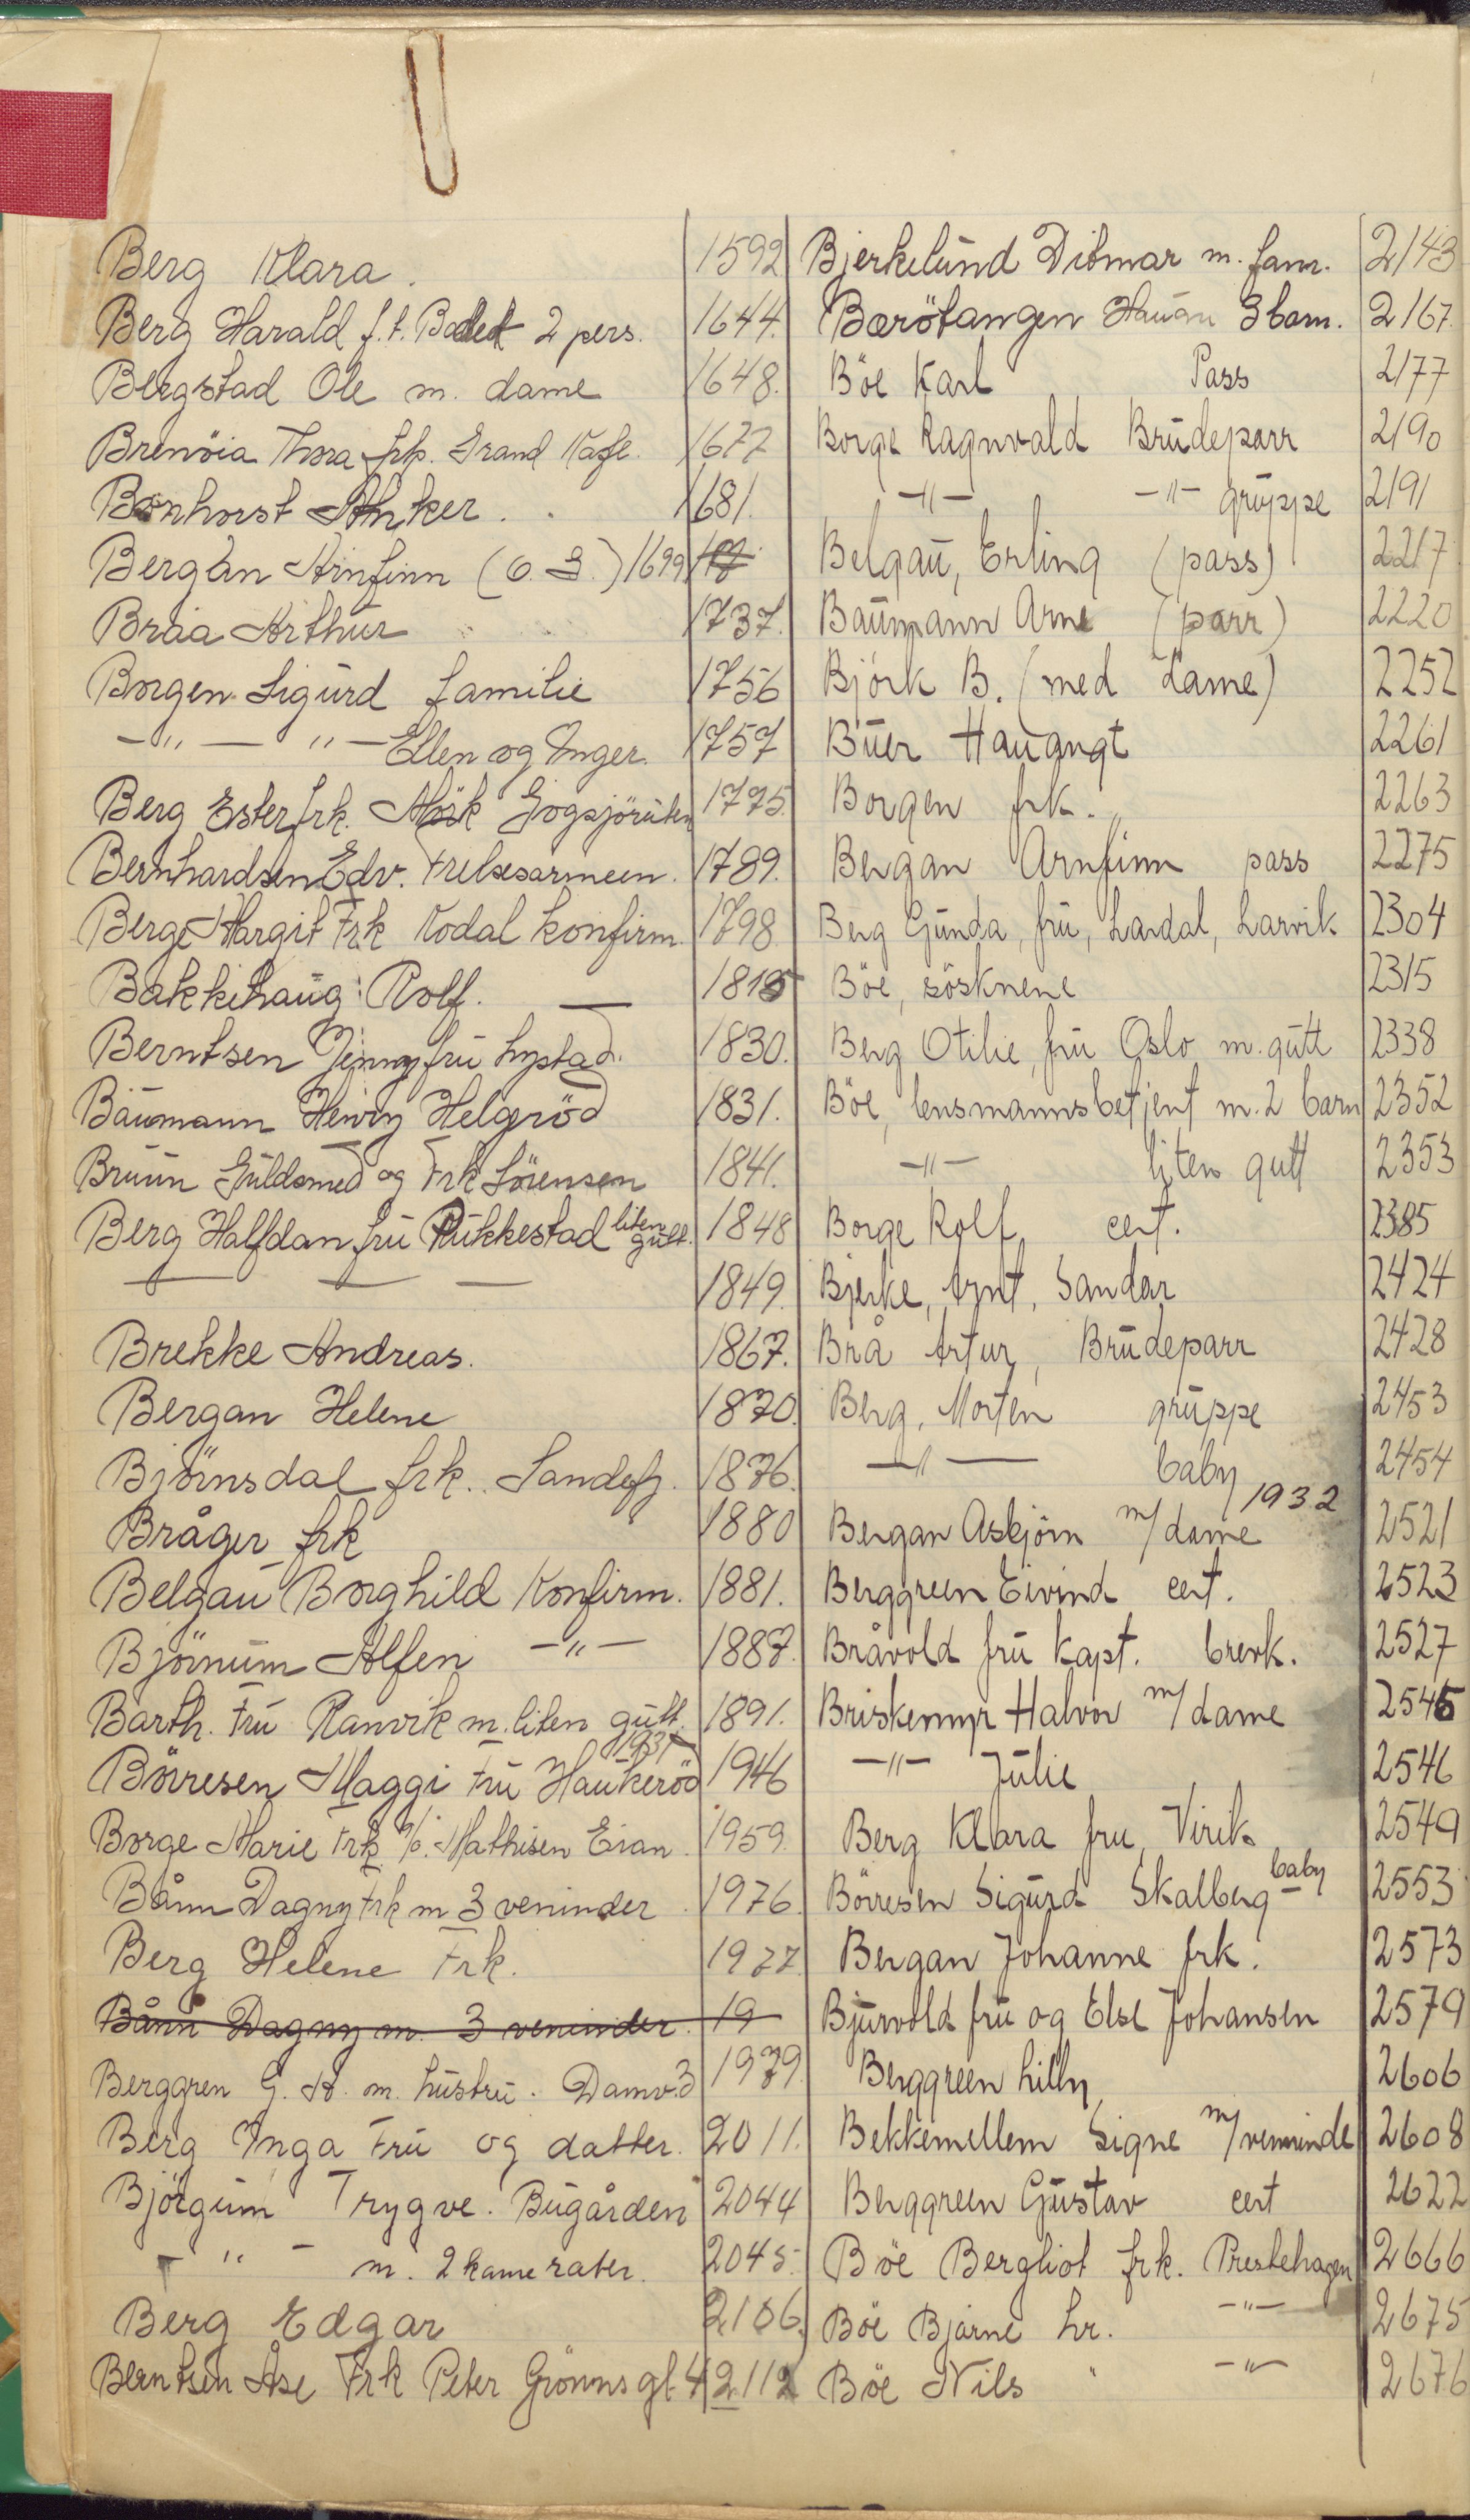 Berg Klara. 1592
Berg Harald f.t. Badet 2 pers. 1644.
Bergstad Ole m. dame 1648.
Brenöia Thora frk. Grand Kafe. 1677
Bonhorst Anker. . 1681.
Bergan Arnfinn (O. S.) 1699
Braa Arthur 1737.
Borgen Sigurd familie 1756
-"- "- Ellen og Inger. 1757
Berg Ester frk. Gogsjöruten 1775.
Bernhardsen Edv. Frelsesarmeen. 1789.
Berge Margit Frk Kodal konfirm. 1798
Bakkehaug Rolf. — 1815
Berntsen Jenny fru Lystad. 1830.
Baumann Henry Helgeröd 1831.
Bruun Guldsmed og Frk Sörensen 1841.
Berg Halfdan fru Rukkestad liten gutt. 1848
— — — 1849.
Brekke Andreas. 1867.
Bergan Helene 1870.
Björnsdal frk. Sandefj. 1876.
Bråger frk 1880
Belgau Borghild Konfirm. 1881.
Björnum Alfen -"- 1887.
Barth. Fru Ranvik m. liten gutt. 1891.
1931
Börresen Maggi Fru Haukeröd 1946
Borge Marie Frk. Mathisen Eian. 1959.
Bånn Dagny Frk m 3 veninder 1976.
Berg Helene Frk. 1977.
Bånn Dagny m. 3 veninder. 19
Berggren G. A. m. hustru. Damv.3 1979.
Berg Inga Fru og datter. 2011.
Björgum Trygve. Bugården 2044
- " - m. 2 kamerater. 2045.
Berg Edgar 2106.
Berntsen Åse Frk Peter Grönnsgt 4 2112
Bjerkelund Ditmar m. fam. 2143
Bærötangen Haugan 3 barn. 2167.
Böe Karl Pass 2177
Borge Ragnvald Brudeparr 2190
-"- -"- gruppe 2191
Belgau, Erling (pass) 2217
Baumann Arne (parr) 2220
Björk B. (med dame) 2252
Buer Hauangt 2261
Borgen frk. 2263
Bergan Arnfinn pass 2275
Berg Gunda, fru, Lardal, Larvik 2304
Böe, sösknene 2315
Berg Otilie, fru Oslo m. gutt 2338
Böe, lensmannsbetjent m. 2 barn 2352
-"- liten gutt 2353
Borge Rolf cert. 2385
Bjerke, Arnt, Sandar 2424
Brå Artur, Brudeparr 2428
Berg, Morten gruppe 2453
-"- baby 2454
1932
Bergan Asbjörn m/ dame 2521
Berggreen Eivind cert. 2523
Bråvold fru kapt. brevk. 2527
Briskemyr Halvor m/ dame 2545
-"- Julie 2546
Berg Klara fru, Virik 2549
Börresen Sigurd Skalberg baby 2553
Bergan Johanne frk. 2573
Bjurvold fru og Else Johansen 2579
Berggreen Lilly 2606
Bekkemellem Signe m/ veninde 2608
Berggreen Gustav cert 2622
Böe Bergliot frk. Prestehagen 2666
Böe Bjarne hr. -"- 2675
Böe Nils " -"- 2676